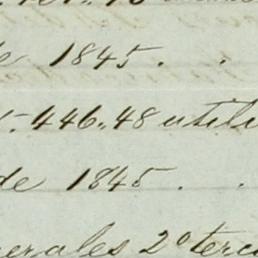 de 1845.
446.48 utili
de 1845.
erales 2º terc